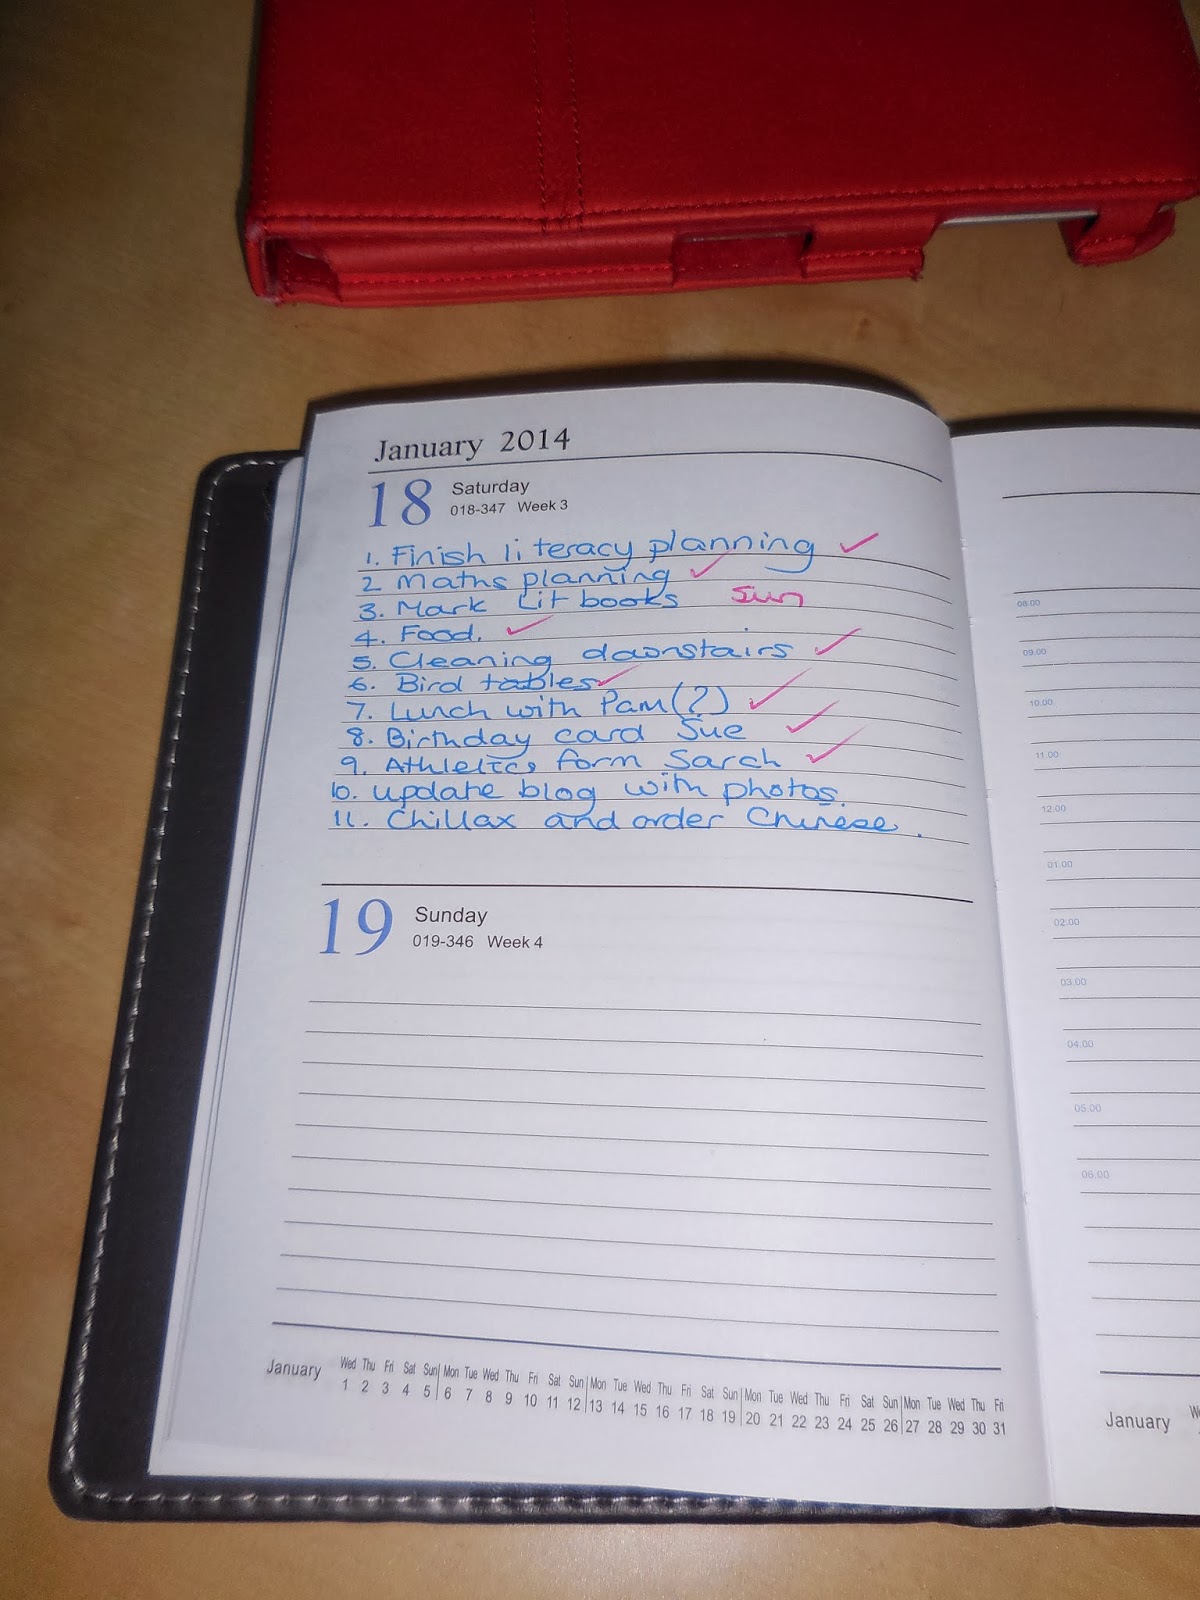 January 2014
18 Saturday
018-347 Week 3
1. Finish literacy planning ✓
2 Maths planning ✓
3. Mark Lit books Sun
4. Food. ✓
5. Cleaning downstairs ✓
6. Bird tables ✓
7. Lunch with Pam (?) ✓
8. Birthday card Sue ✓
9. Athletics form Sarah ✓
10. update blog with photos.
11. Chillax and order Chinese.
19 Sunday
019-346 Week 4
January Wed Thu Fri Sat Sun Mon Tue Wed Thu Fri Sat Sun Mon Tue Wed Thu Fri Sat Sun Mon Tue Wed Thu Fri Sat Sun Mon Tue Wed Thu Fri
1 2 3 4 5 6 7 8 9 10 11 12 13 14 15 16 17 18 19 20 21 22 23 24 25 26 27 28 29 30 31
08.00
09.00
10.00
11.00
12.00
01.00
02.00
03.00
04.00
05.00
06.00
January